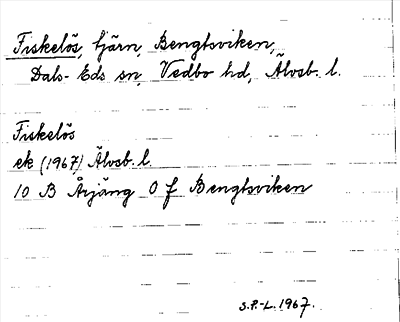 Fiskelös, tjärn, Bengtsviken,
Dals-Eds sn, Vedbo hd, Älvsb. l.
Fiskelös
ek (1967) Älvsb. l.
10 B Årjäng 0 f Bengtsviken
S.P.-L. 1967.